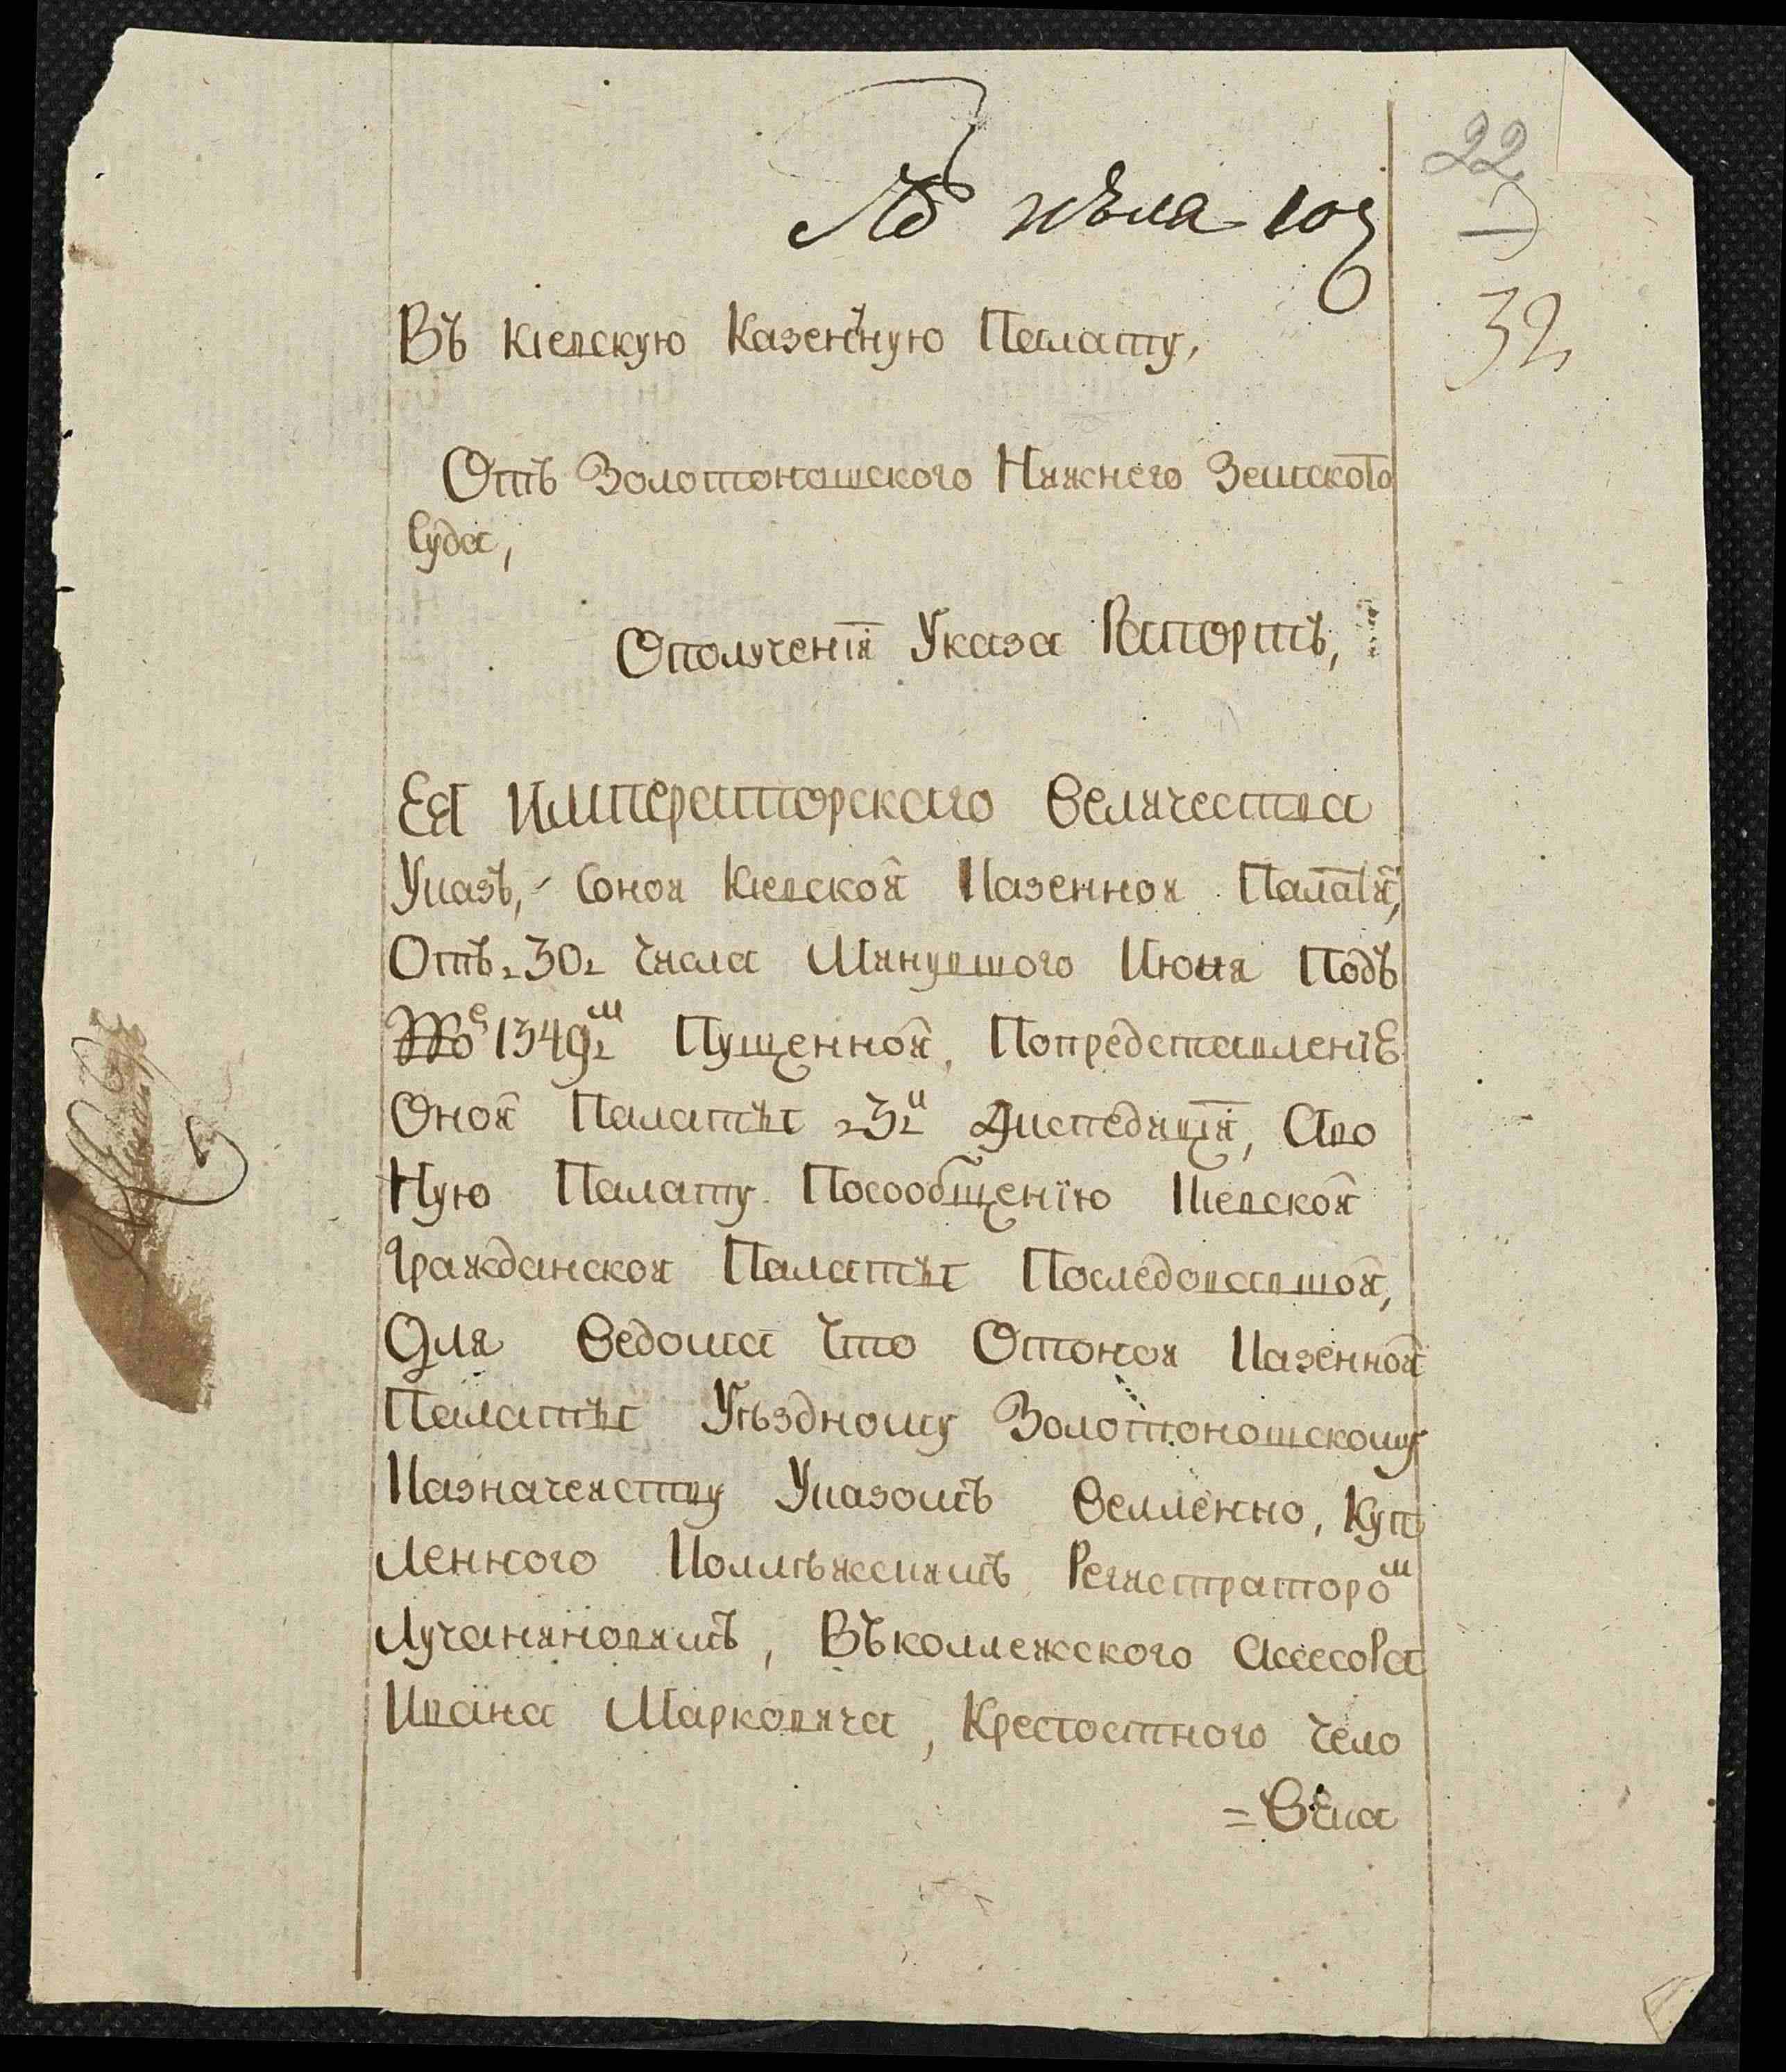 22
32
Въ Кіевскую Казенную Палату,
Отъ Золотоношского Нижнего Земского
Суда,
Ополученіи Указа Рапортъ,
Ея Императорскаго Величества
Указъ, Соной Кіевской Казенной Палаты,
Отъ 30 Числа Минувшого Июня Подъ
№е 1349м Пущенной, Попредставленіе
Оной Палаты 3й Экспедиціи, Аво
Ную Палату Посообщенїю Киевской
Гражданской Палаты Последовавшой,
Для Ведома Что Отоной Казенной
Палаты Уѣздному Золотоношскому
Казначейству Указомъ Велленно, Куп
ленного Коллѣжскимъ Регистраторомъ
Лучаниновимъ, Въколлежского Асессора
Ивана Марковича, Крепостного Чело
= Века